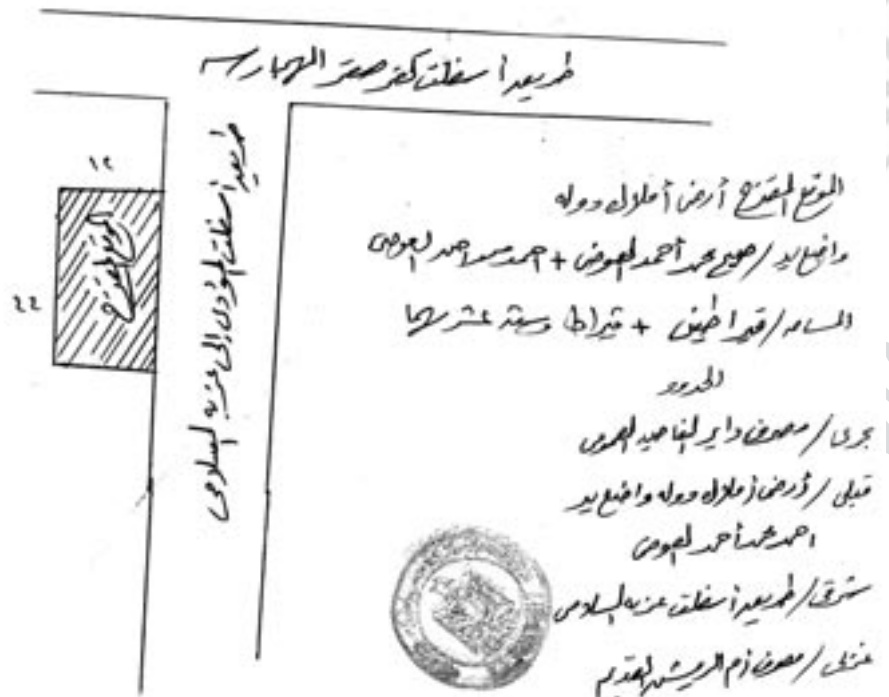 طريق أسفلت كفر صقر الهجارسه
١٢
٢٢
الموقع المقترح
طريق أسفلت المؤدى إلى عزبه السلامى
الموقع المقترح أرض أملاك دوله
واضع يد / محمد أحمد العوضى + احمد محمد احمد العوضى
المساحه / قيراطين + قيراط وستة عشر سهما
الحدود
بحرى / مصرف داير الناحيه العمومى
قبلى / أرض أملاك دوله واضع يد
احمد محمد أحمد العوضى
شرقى / طريق أسفلت عزبه السلامى
غربى / مصرف أم الريش القديم